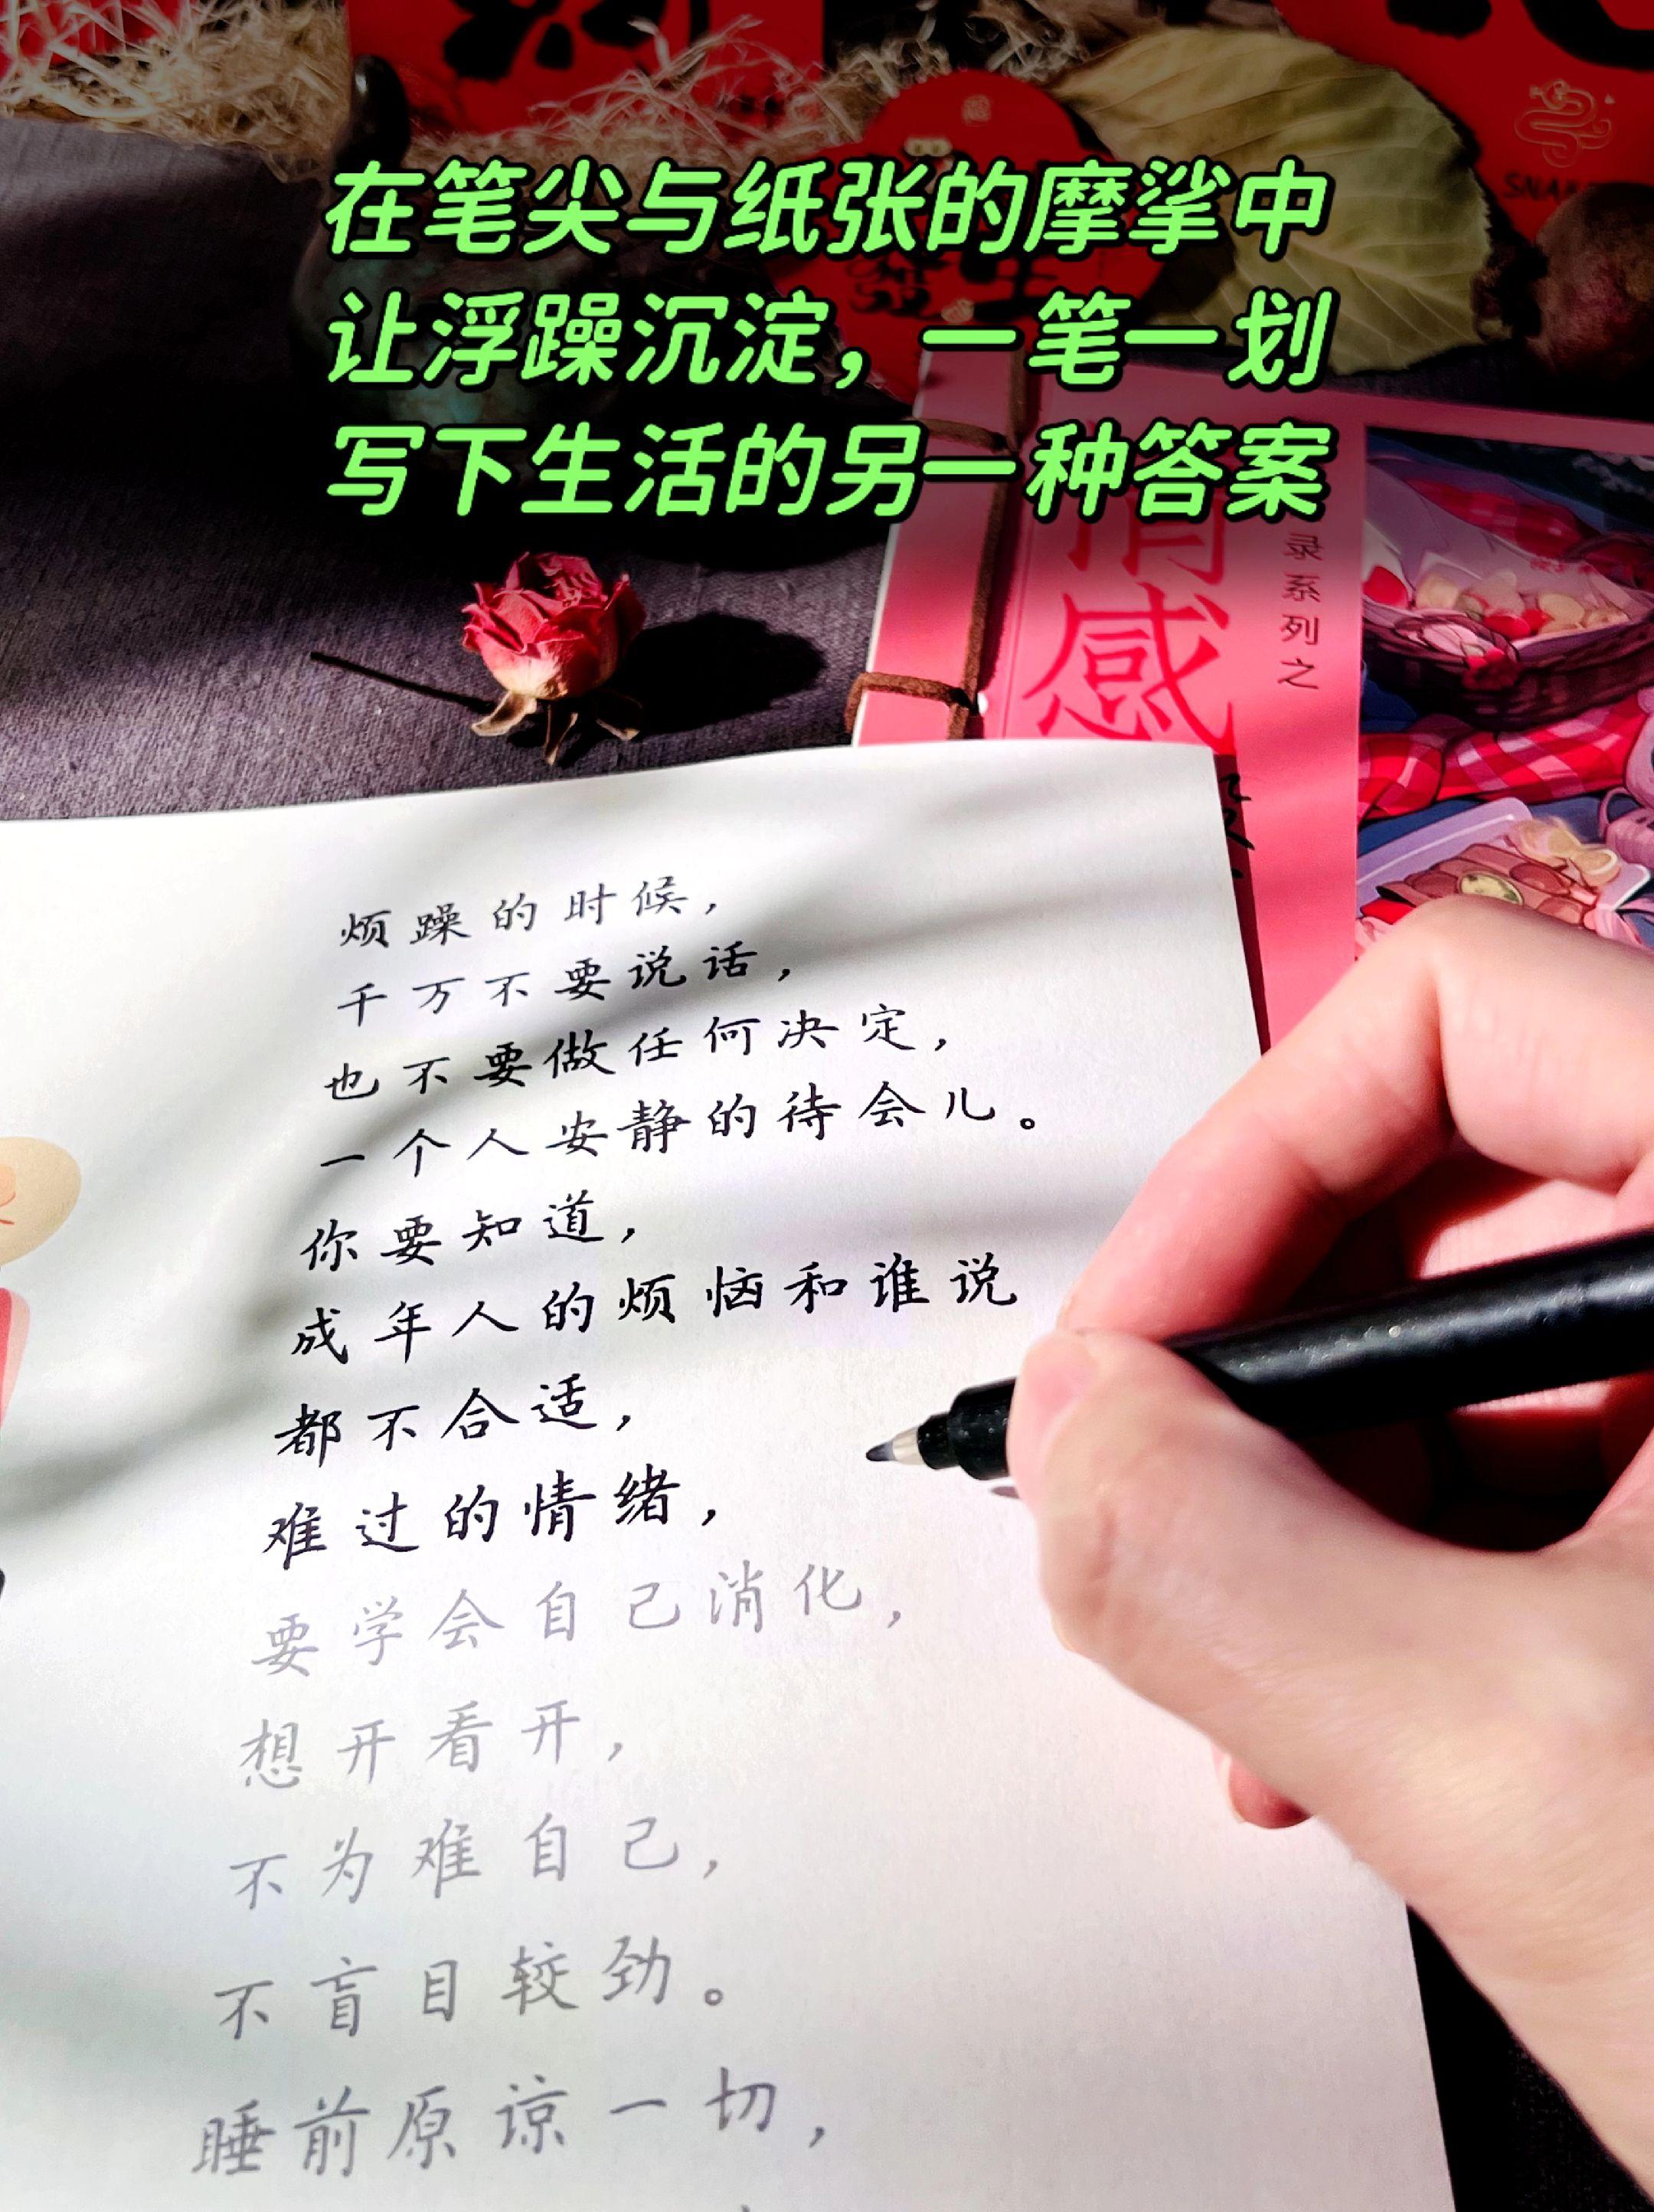 在笔尖与纸张的摩挲中
让浮躁沉淀，一笔一划
写下生活的另一种答案
SNA
發生
情感
录系列之
烦躁的时候，
千万不要说话，
也不要做任何决定，
一个人安静的待会儿。
你要知道，
成年人的烦恼和谁说
都不合适，
难过的情绪，
要学会自己消化，
想开看开，
不为难自己，
不盲目较劲。
睡前原谅一切，